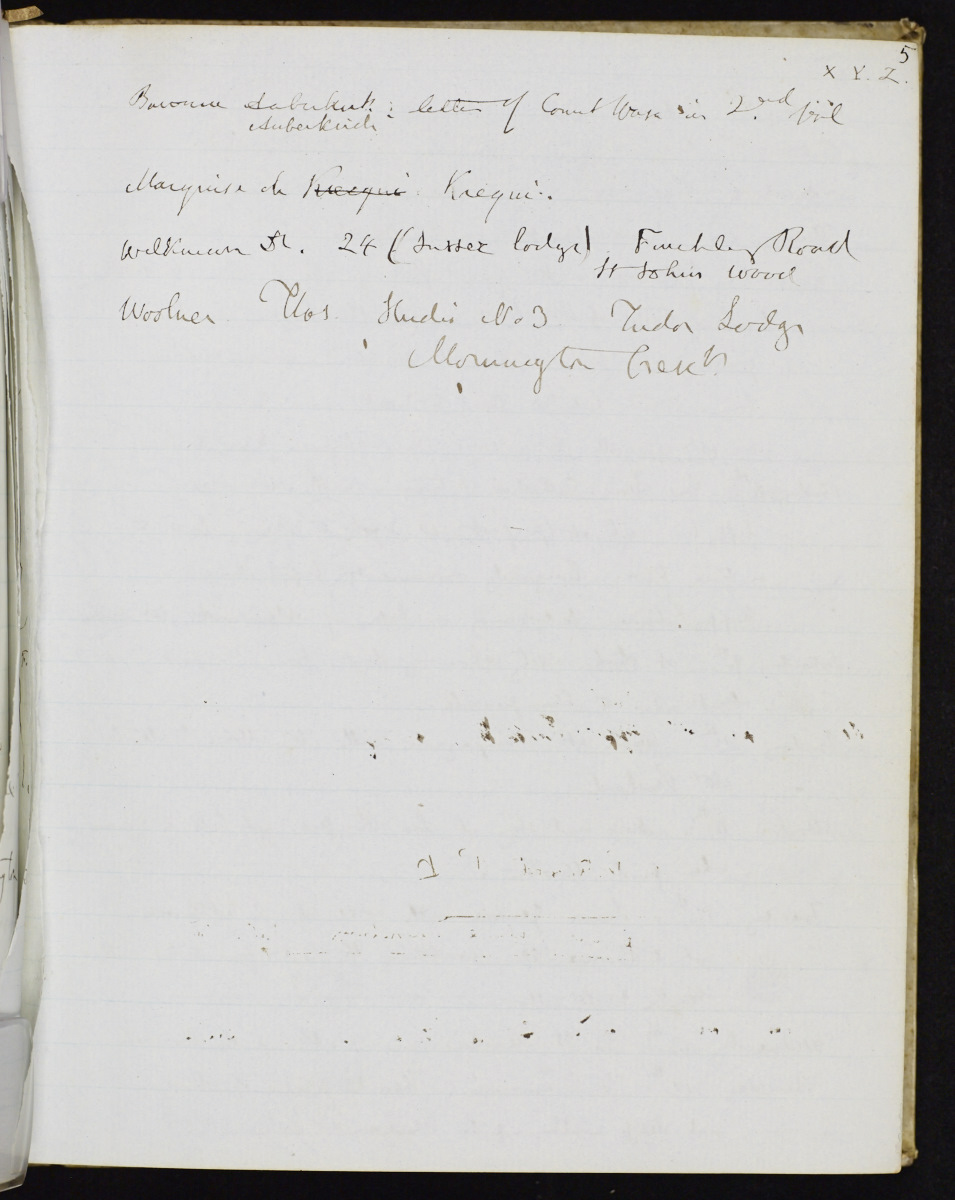 5
X Y. Z.
Baronne Auberkirk : letter of Count Wasa in 2nd vol
Auberkirch
Marquise de Krequi. Krequi.
Wilkinson Dr. 24 (Sussex lodge) Finchley Road
St Johns Wood
Woolner Thos. Studio No 3 Tudor Lodge
Mornington Cresct.